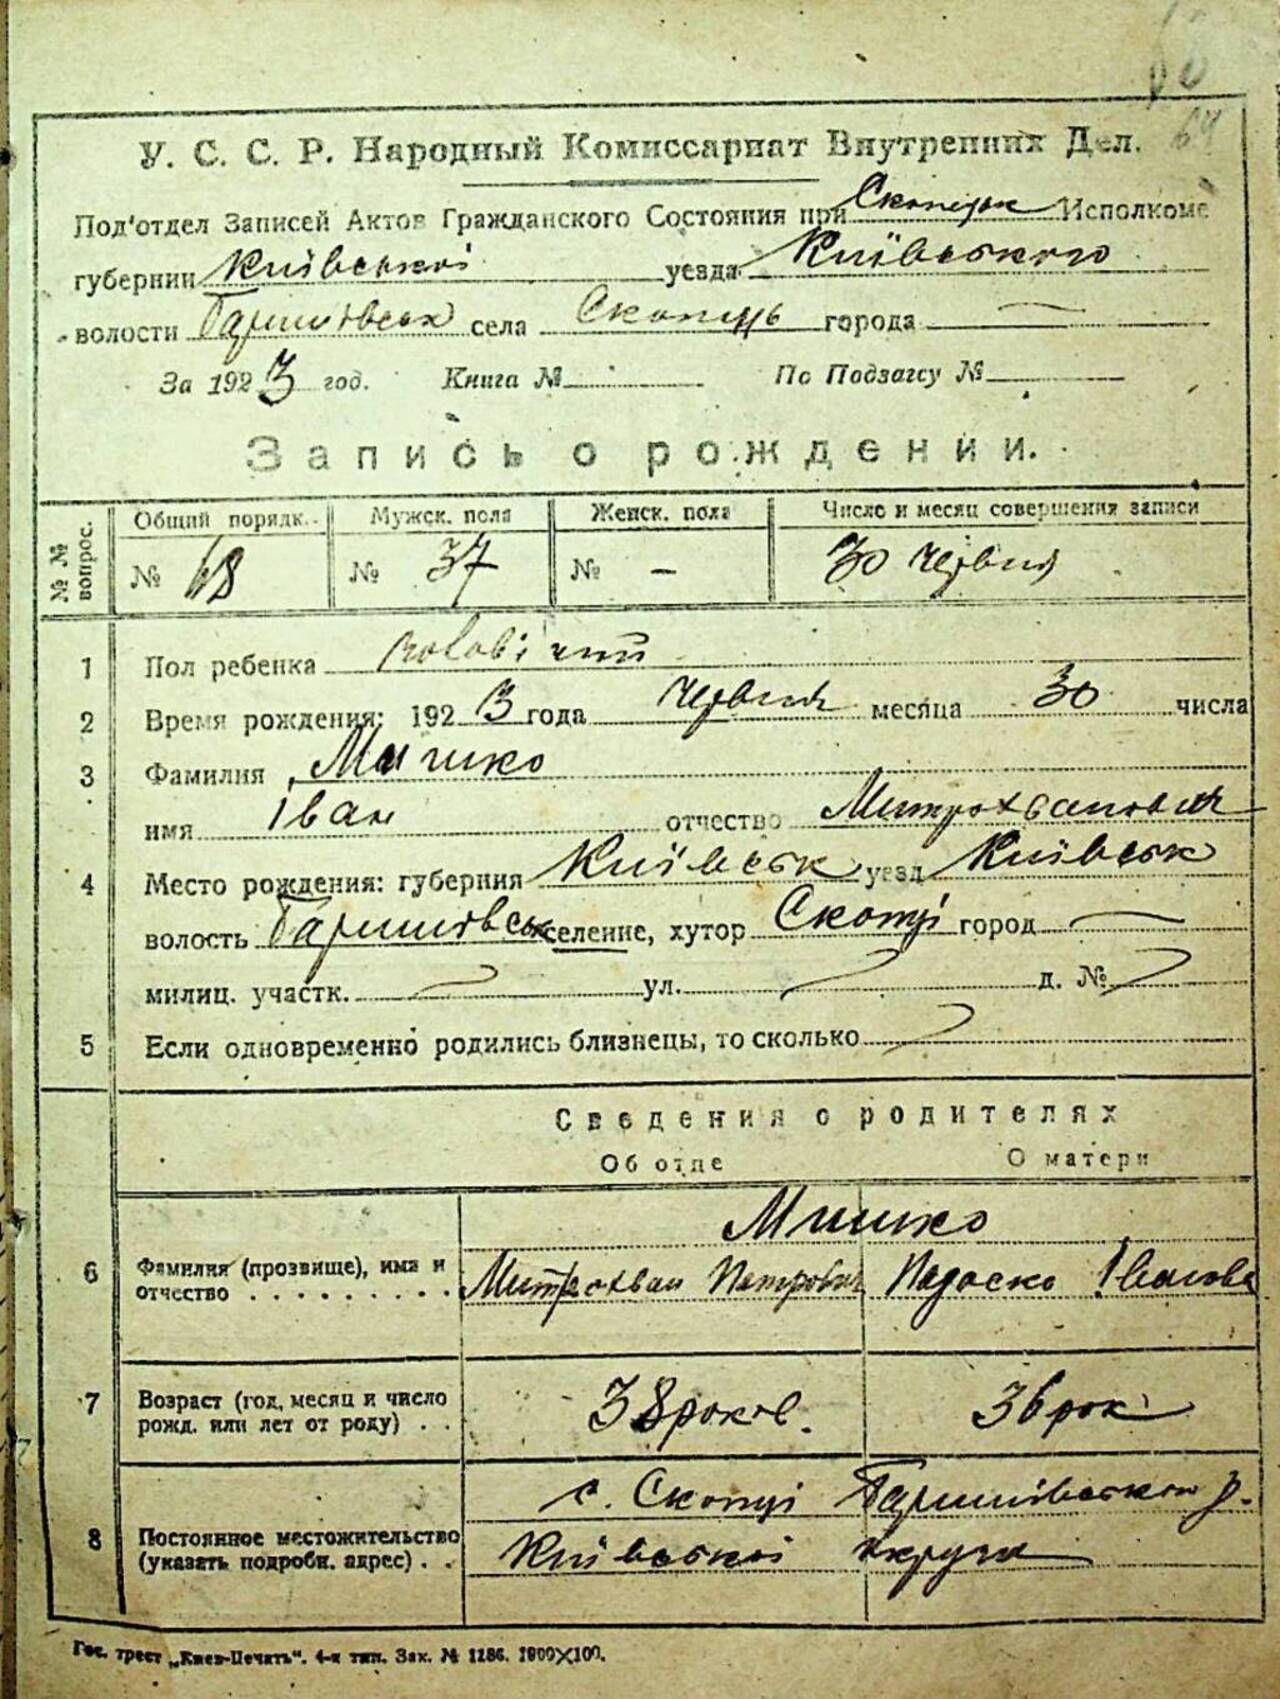 68
64
У. С. С. Р. Народный Комиссариат Внутренних Дел.
Под'отдел Записей Актов Гражданского Состояния при Исполкоме
губернии Київської уезда Київського
волости села города —
За 1923 год. Книга № По Подзагсу №
Запись о рождении.
№№ вопрос. Общий порядк. Мужск. пола Женск. пола Число и месяц совершения записи
№ 68 № 37 № – 30 червня
1 Пол ребенка чоловічий
2 Время рождения: 1923 года червня месяца 30 числа
3 Фамилия
имя Іван отчество Митрохванович
4 Место рождения: губерния Київськ уезд Київськ
волость селение, хутор Скопці город —
милиц. участк. ул. д. №
5 Если одновременно родились близнецы, то сколько
Сведения о родителях
Об отце О матери
6 Фамилия (прозвище), имя и отчество . . . . . . . . . .
Митрохван Петрович Іванова
7 Возраст (год, месяц и число рожд. или лет от роду) . . 38 років. 36 рок
8 Постоянное местожительство (указать подробн. адрес) . .
с. Скопці р.
Київської округи
Гос. трест „Киев-Печать“. 4-я тип. Зак. № 1186. 1000×100.